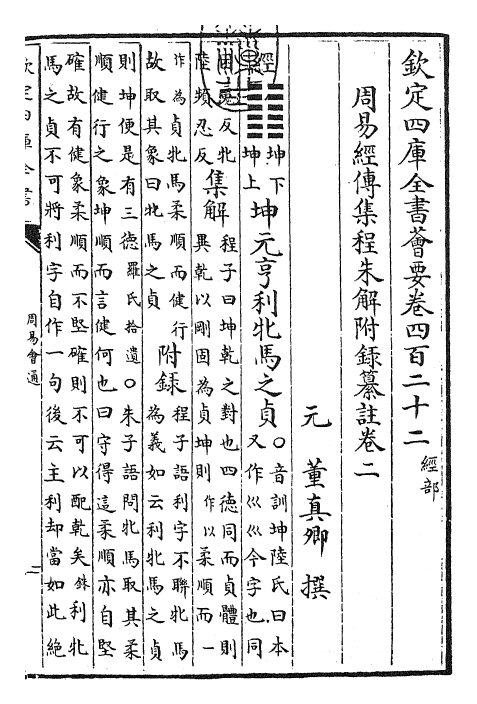 欽定四庫全書薈要卷四百二十二 經部
周易經傳集程朱解附録纂註卷二
元 董真卿 撰
經 ䷁ 坤下
坤上 坤元亨利牝馬之貞 ○音訓坤陸氏曰本
又作巛巛今字也同
困魂反牝
陸頻忍反 集解 程子曰坤乾之對也四德同而貞體則
異乾以剛固為貞坤則作以柔順而一
作為貞牝馬柔順而健行
故取其象曰牝馬之貞 附録 程子語利字不聯牝馬
為義如云利牝馬之貞
則坤便是有三德羅氏拾遺○朱子語問牝馬取其柔
順健行之象坤順而言健何也曰守得這柔順亦自堅
確故有健象柔順而不堅確則不可以配乾矣銖利牝
馬之貞不可將利字自作一句後云主利却當如此絶
欽定四庫全書
周易會通